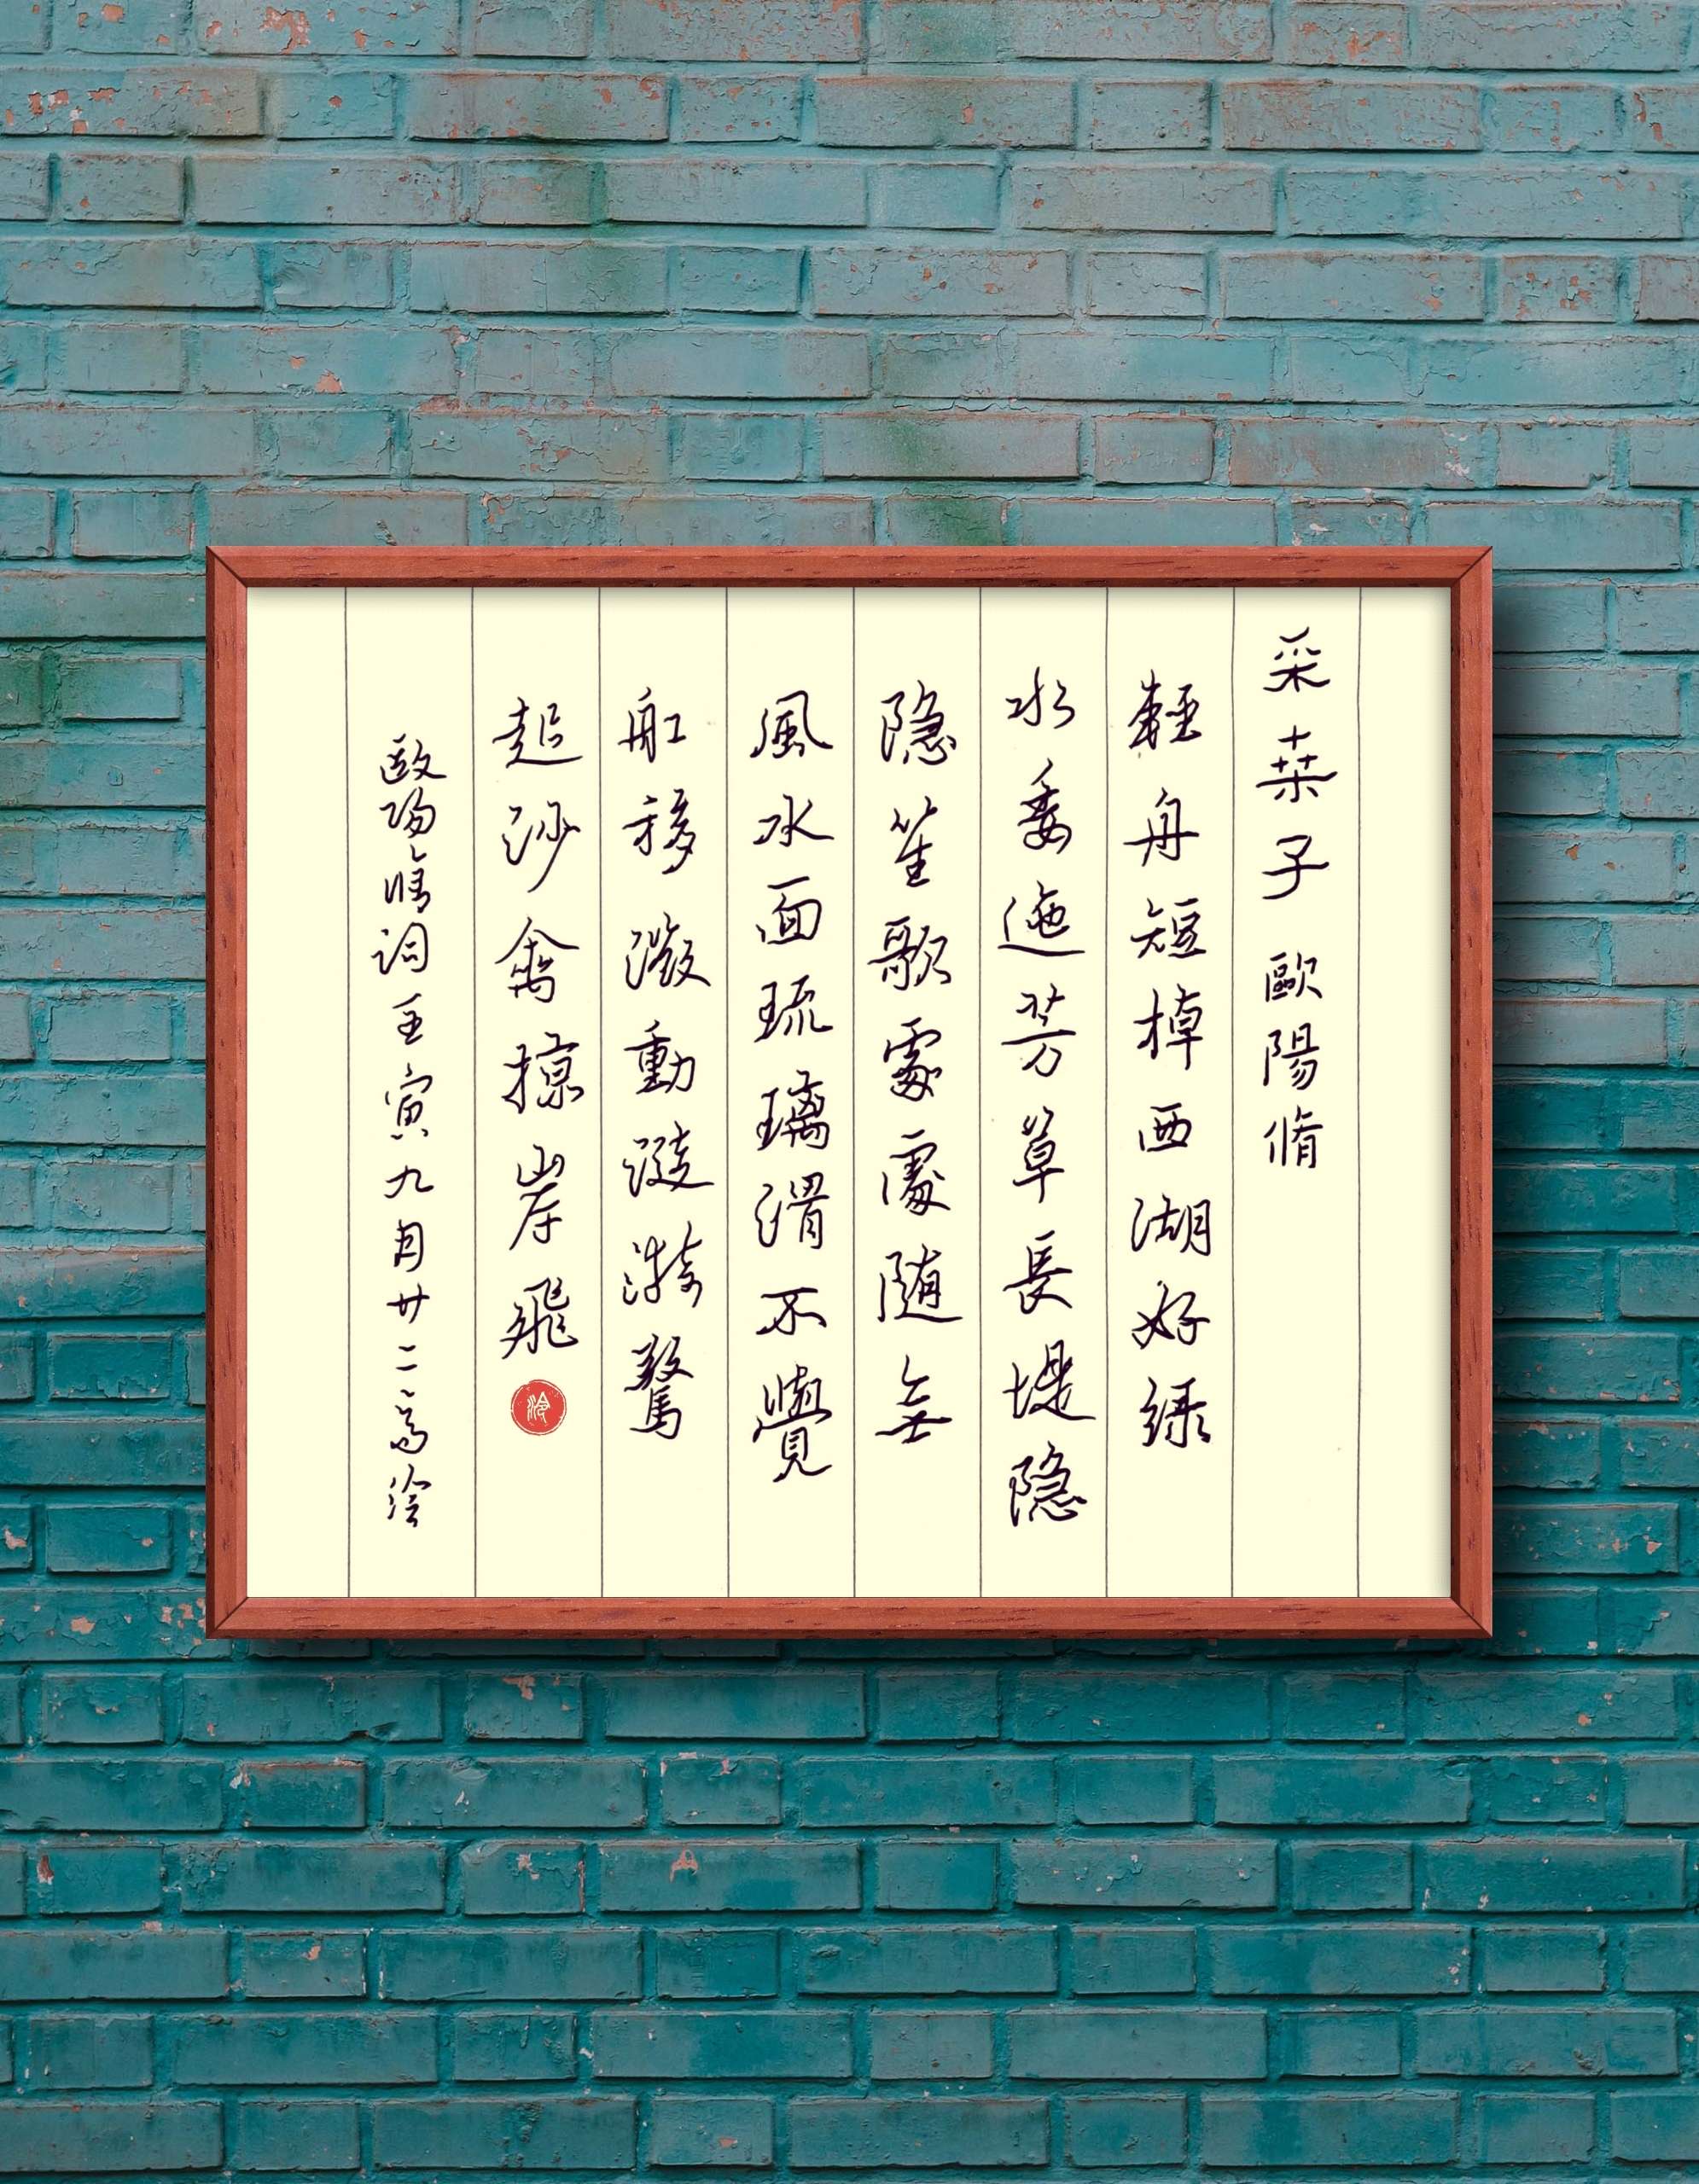 采桑子 歐陽脩
輕舟短棹西湖好綠
水委迤芳草長堤隐
隐笙歌處處隨無
風水面琉璃滑不覺
船移微動漣漪驚
起沙禽掠岸飛
歐陽脩詞壬寅九月廿二高泠
泠